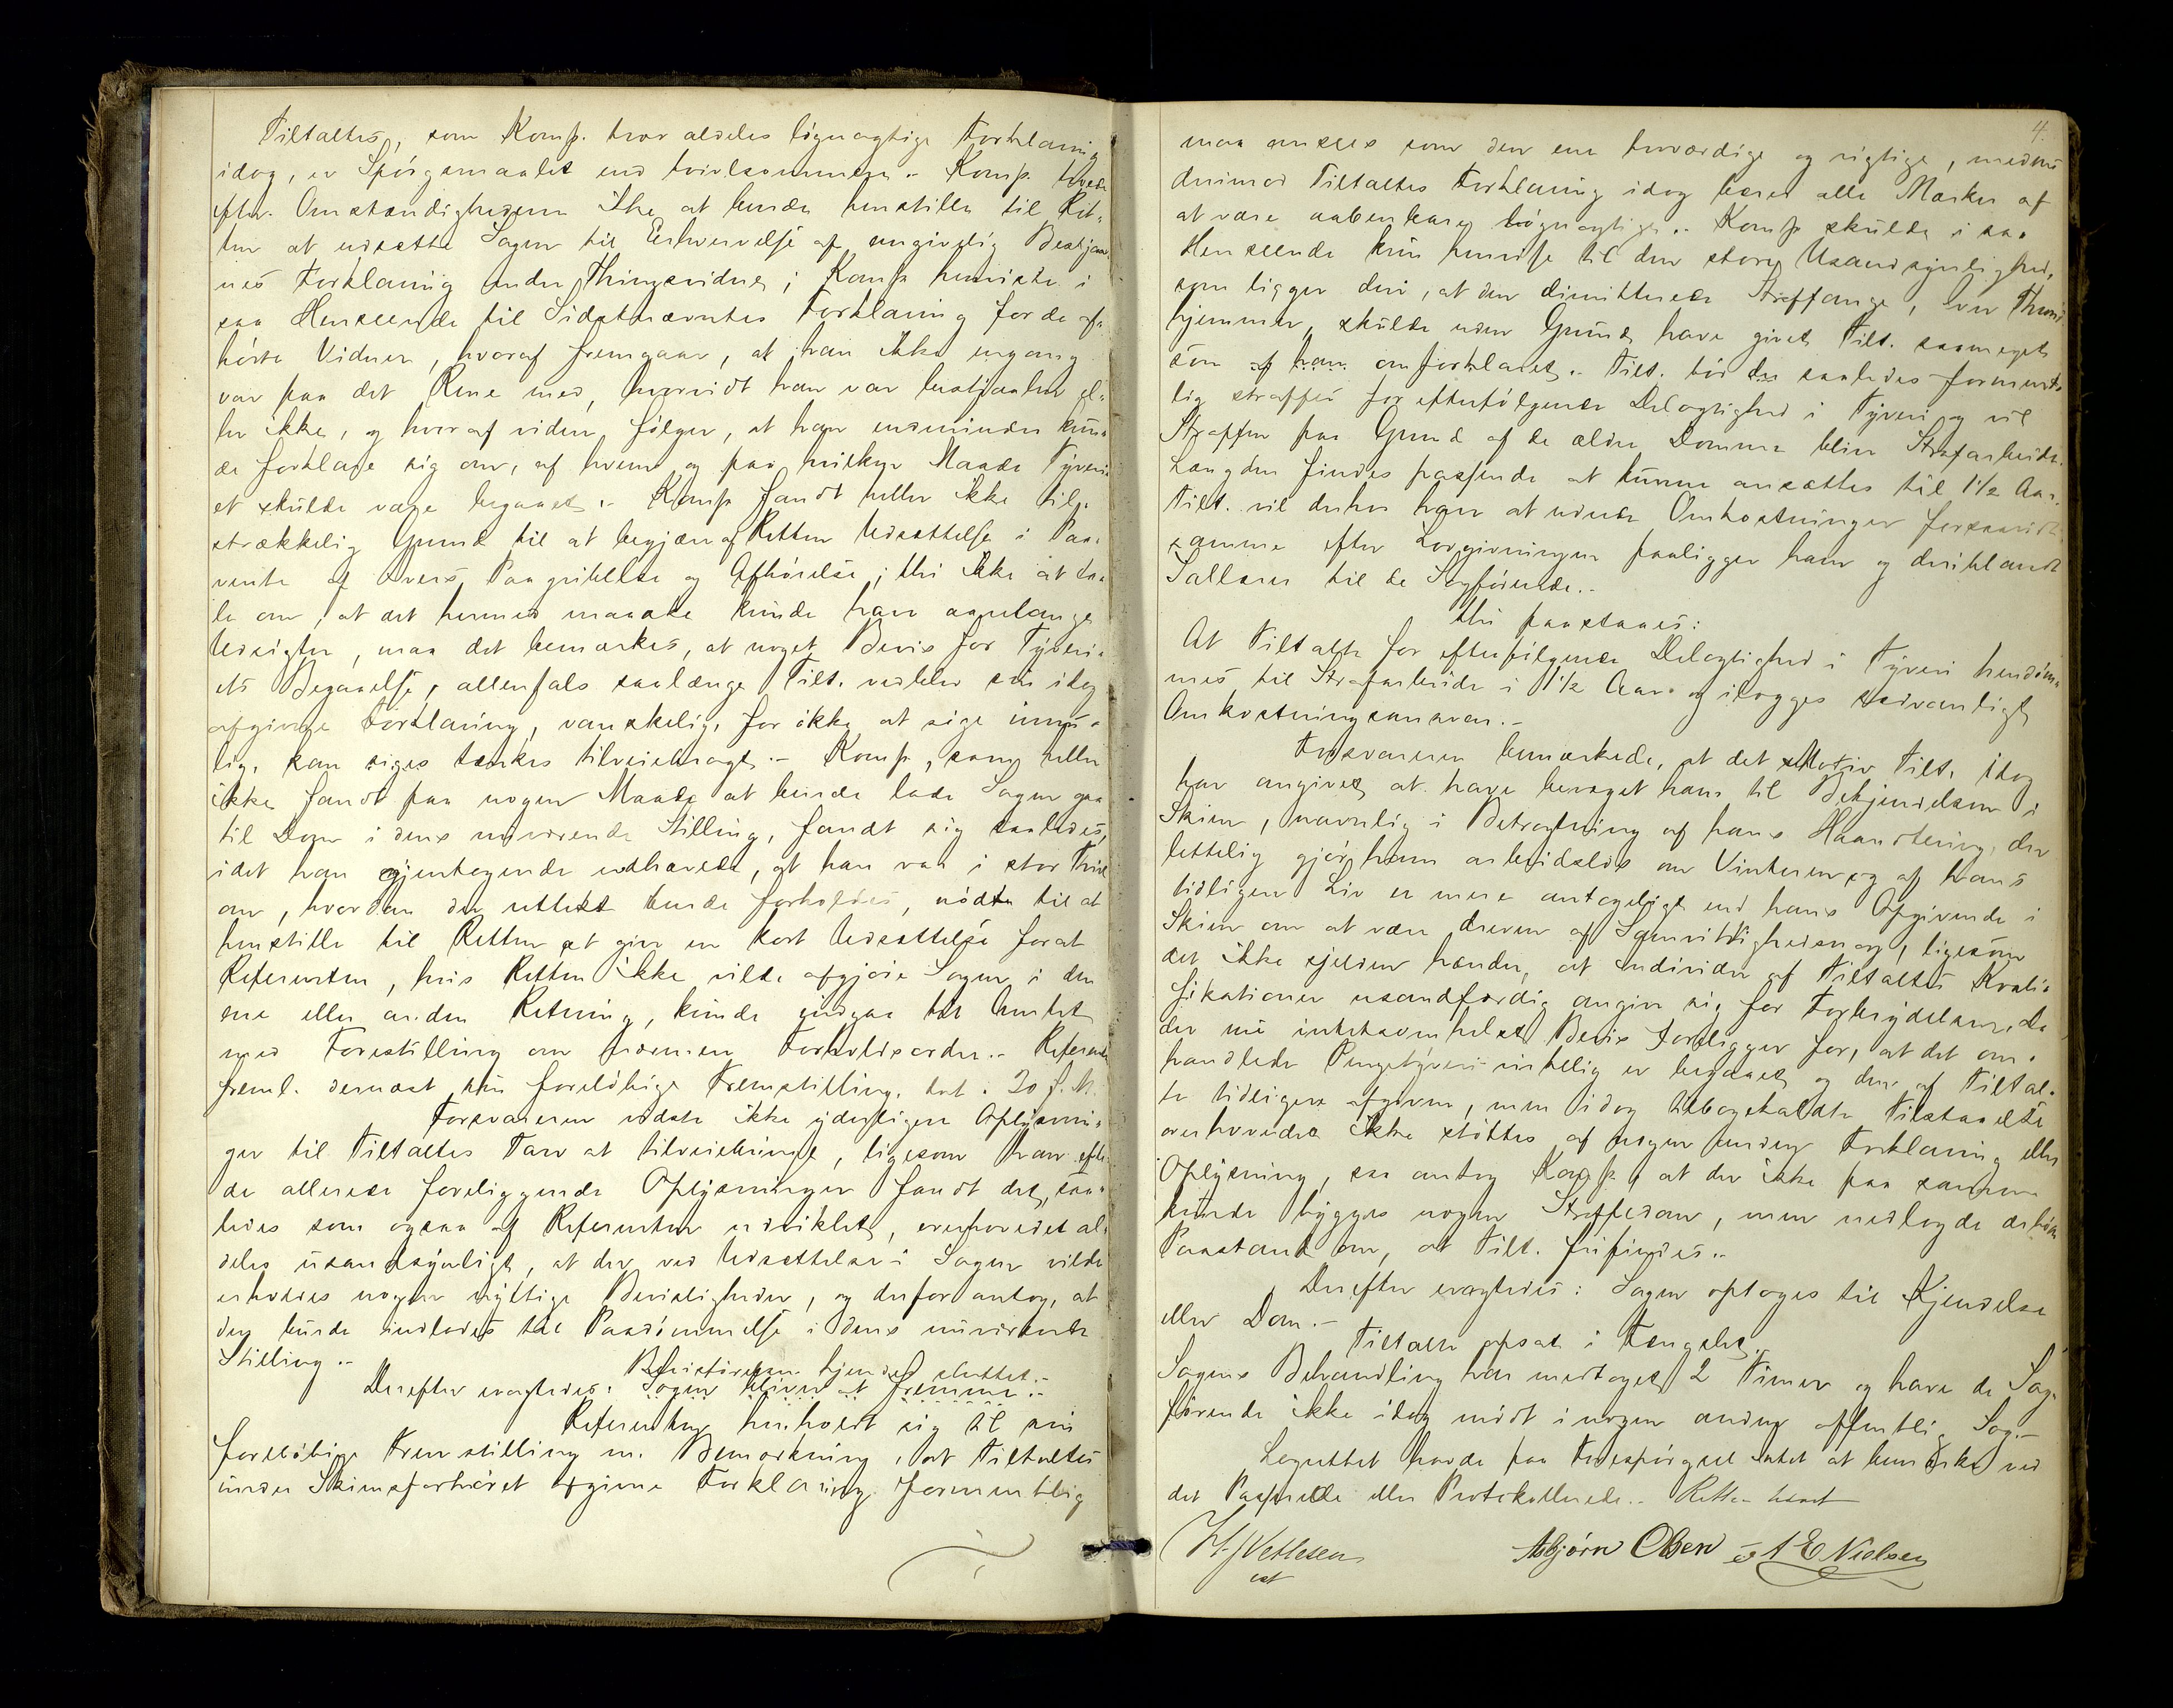 Tiltaltes, som Komp. tror aldeles løgnagtige Forklaring
idag, er Spørgsmaalet end tvivlsommere.- Komp. troede
efter Omstændighederne ikke at burde henstille til Ret-
ten at udsætte Sagen til Erhvervelse af angivelig Bestjaal-
nes Forklaring under Thingsvidne; Komp. henviste i
saa Henseende til Sidstnævntes Forklaring for de af-
hørte Vidner, hvoraf fremgaar, at han ikke engang
var paa det Rene med, hvorvidt han var bestjaalet el-
ler ikke, og hvoraf videre følger, at han endmindre kun-
de forklare sig om, af hvem og paa hvilken Maade Tyveri-
et skulde være begaaet.- Komp. fandt heller ikke til-
strækkelig Grund til at begjære af Retten Udsættelse i Paa-
vente af Ivers Paagribelse og Afhørelse; thi ikke at ta-
le om, at det hermed maaske kunde have aarelange
Udsigter, maa det bemærkes, at noget Bevis for Tyveri-
ets Begaaelse, allenfals saalænge Tilt. vedblev sin idag
afgivne Forklaring, vanskelig, for ikke at sige umu-
lig, kan siges tænkes tilveiebragt.- Komp., som heller
ikke fandt paa nogen Maade at burde lade Sagen gaa
til Dom i dens nuværende Stilling, fandt sig saaledes,
idet han gjentagende udhævede, at han var i stor Tvivl
om, hvordan der rettest burde forholdes, nødt til at
henstille til Retten at give en kort Udsættelse forat
Referenten, hvis Retten ikke vilde afgjøre Sagen i den
ene eller anden Retning, kunde indgaa til Amtet
med Forestilling om nærmere Forholdsordre.- Referenten
freml. dernæst sin foreløbige Fremstilling, dat. 30 f. M.
Forsvareren vidste ikke yderligere Oplysnin-
ger til Tiltaltes Tarv at tilveiebringe, ligesom han efter
de allerede foreliggende Oplysninger fandt det, saa-
ledes som ogsaa af Referenten udviklet, overhovedet al-
deles usandsynligt, at der ved Udsættelse i Sagen vilde
erholdes nogen nyttige Bevisligheder, og derfor antog, at
den burde indlades til Paadømmelse i dens nuværende
Stilling.-
Bevisførelsen kjendes sluttet.-
Derefter eragtedes: Sagen bliver at fremme.-
Referenten henholdt sig til sin
foreløbige Fremstilling m. Bemærkning, at Tiltaltes
under Skiensforhøret afgivne Forklaring formentlig
4.
maa ansees som den ene troværdige og rigtige, medens
derimod Tiltaltes Forklaring idag bærer alle Mærker af
at være aabenbare løgnagtige.- Komp. skulde i saa
Henseende kun henvise til den store Usandsynlighed,
som ligger deri, at den dimitterede Straffange, Iver Thron-
hjemmer, skulde uden Grund have givet Tilt. saameget
som af ham omforklaret.- Tilt. bør der saaledes forment-
lig straffes for efterfølgende Delagtighed i Tyveri og vil
Straffen paa Grund af de ældre Domme blive Strafarbeide.
Længden findes passende at kunne ansættes til 1½ Aar.
Tilt. vil derhos have at udrede Omkostninger forsaavidt
samme efter Lovgivningen paaligger ham og deriblandt
Sallærer til de Sagførende.-
Thi paastaaes:
At Tiltalte for efterfølgende Delagtighed i Tyveri hendøm-
mes til Strafarbeide i 1½ Aar og ilægges sedvanligt
Omkostningsansvar.-
Forsvareren bemærkede, at det Motiv Tilt. idag
har angivet at have bevæget ham til Bekjendelsen i
Skien, navnlig i Betragtning af hans Haandtering, der
lettelig gjør ham arbeidsløs om Vinteren og af hans
tidligere Liv er mere antageligt end hans Opgivende i
Skien om at være dreven af Samvittighedsnag, ligesom
det ikke sjelden hænder, at Individer af Tiltaltes Kvali-
fikationer usandfærdig angive sig for Forbrydelser. Da
der nu intetsomhelst Bevis foreligger for, at det om-
handlede Pengetyveri virkelig er begaaet og den af Tiltal-
te tidligere afgivne, men idag tilbagekaldte Tilstaaelse
overhovedet ikke støttes af nogen anden Forklaring eller
Oplysning, saa antog Komp., at der ikke paa samme
kunde bygges nogen Straffedom, men nedlagde derhen
Paastand om, at Tilt. frifindes.-
Derefter eragtedes: Sagen optages til Kjendelse
eller Dom.-
Tiltalte afsat i Fængslet.
Sagens Behandling har medtaget 2 Timer og have de Sag-
førende ikke idag mødt i nogen anden offentlig Sag.-
Lagrettet havde paa Forespørgsel Intet at bemærke ved
det Passerede eller Protokollerede.- Retten hævet
H. J. Vetlesen
cst
Asbjørn Olsen
A E Nielsen